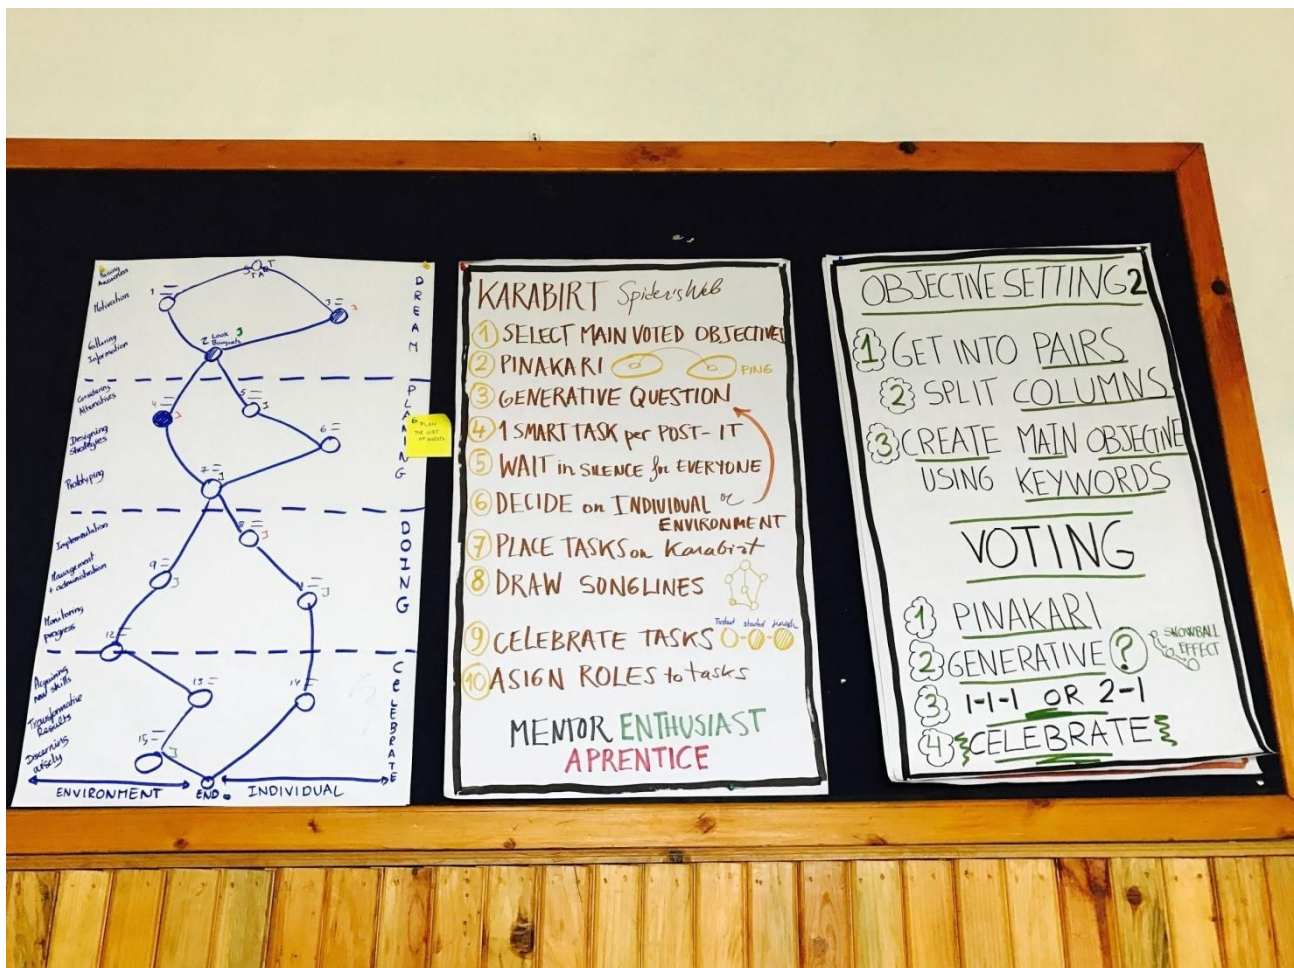 START
Raising
Awareness
Motivation
Gathering
Information
Considering
Alternatives
Designing
strategies
Prototyping
Implementation
Management
+ administration
Monitoring
progress
Acquiring
new skills
Transformative
Results
Discerning
wisely
1
2
3
4
5
6
7
8
9
12
13
14
15
DREAM
PLANING
DOING
CELEBRATE
ENVIRONMENT
END
INDIVIDUAL
6
PLAN
THE LIST
OF GUESTS
KARABIRT Spider's Web
1 SELECT MAIN VOTED OBJECTIVE
2 PINAKARI PING
3 GENERATIVE QUESTION
4 1 SMART TASK per POST-IT
5 WAIT in SILENCE for EVERYONE
6 DECIDE on INDIVIDUAL or
ENVIRONMENT
7 PLACE TASKS on Karabirt
8 DRAW SONGLINES
9 CELEBRATE TASKS started
10 ASIGN ROLES to tasks
MENTOR ENTHUSIAST
APRENTICE
OBJECTIVE SETTING 2
1 GET INTO PAIRS
2 SPLIT COLUMNS
3 CREATE MAIN OBJECTIVE
USING KEYWORDS
VOTING
1 PINAKARI
2 GENERATIVE ?
SNOWBALL
EFFECT
3 1-1-1 OR 2-1
4 CELEBRATE